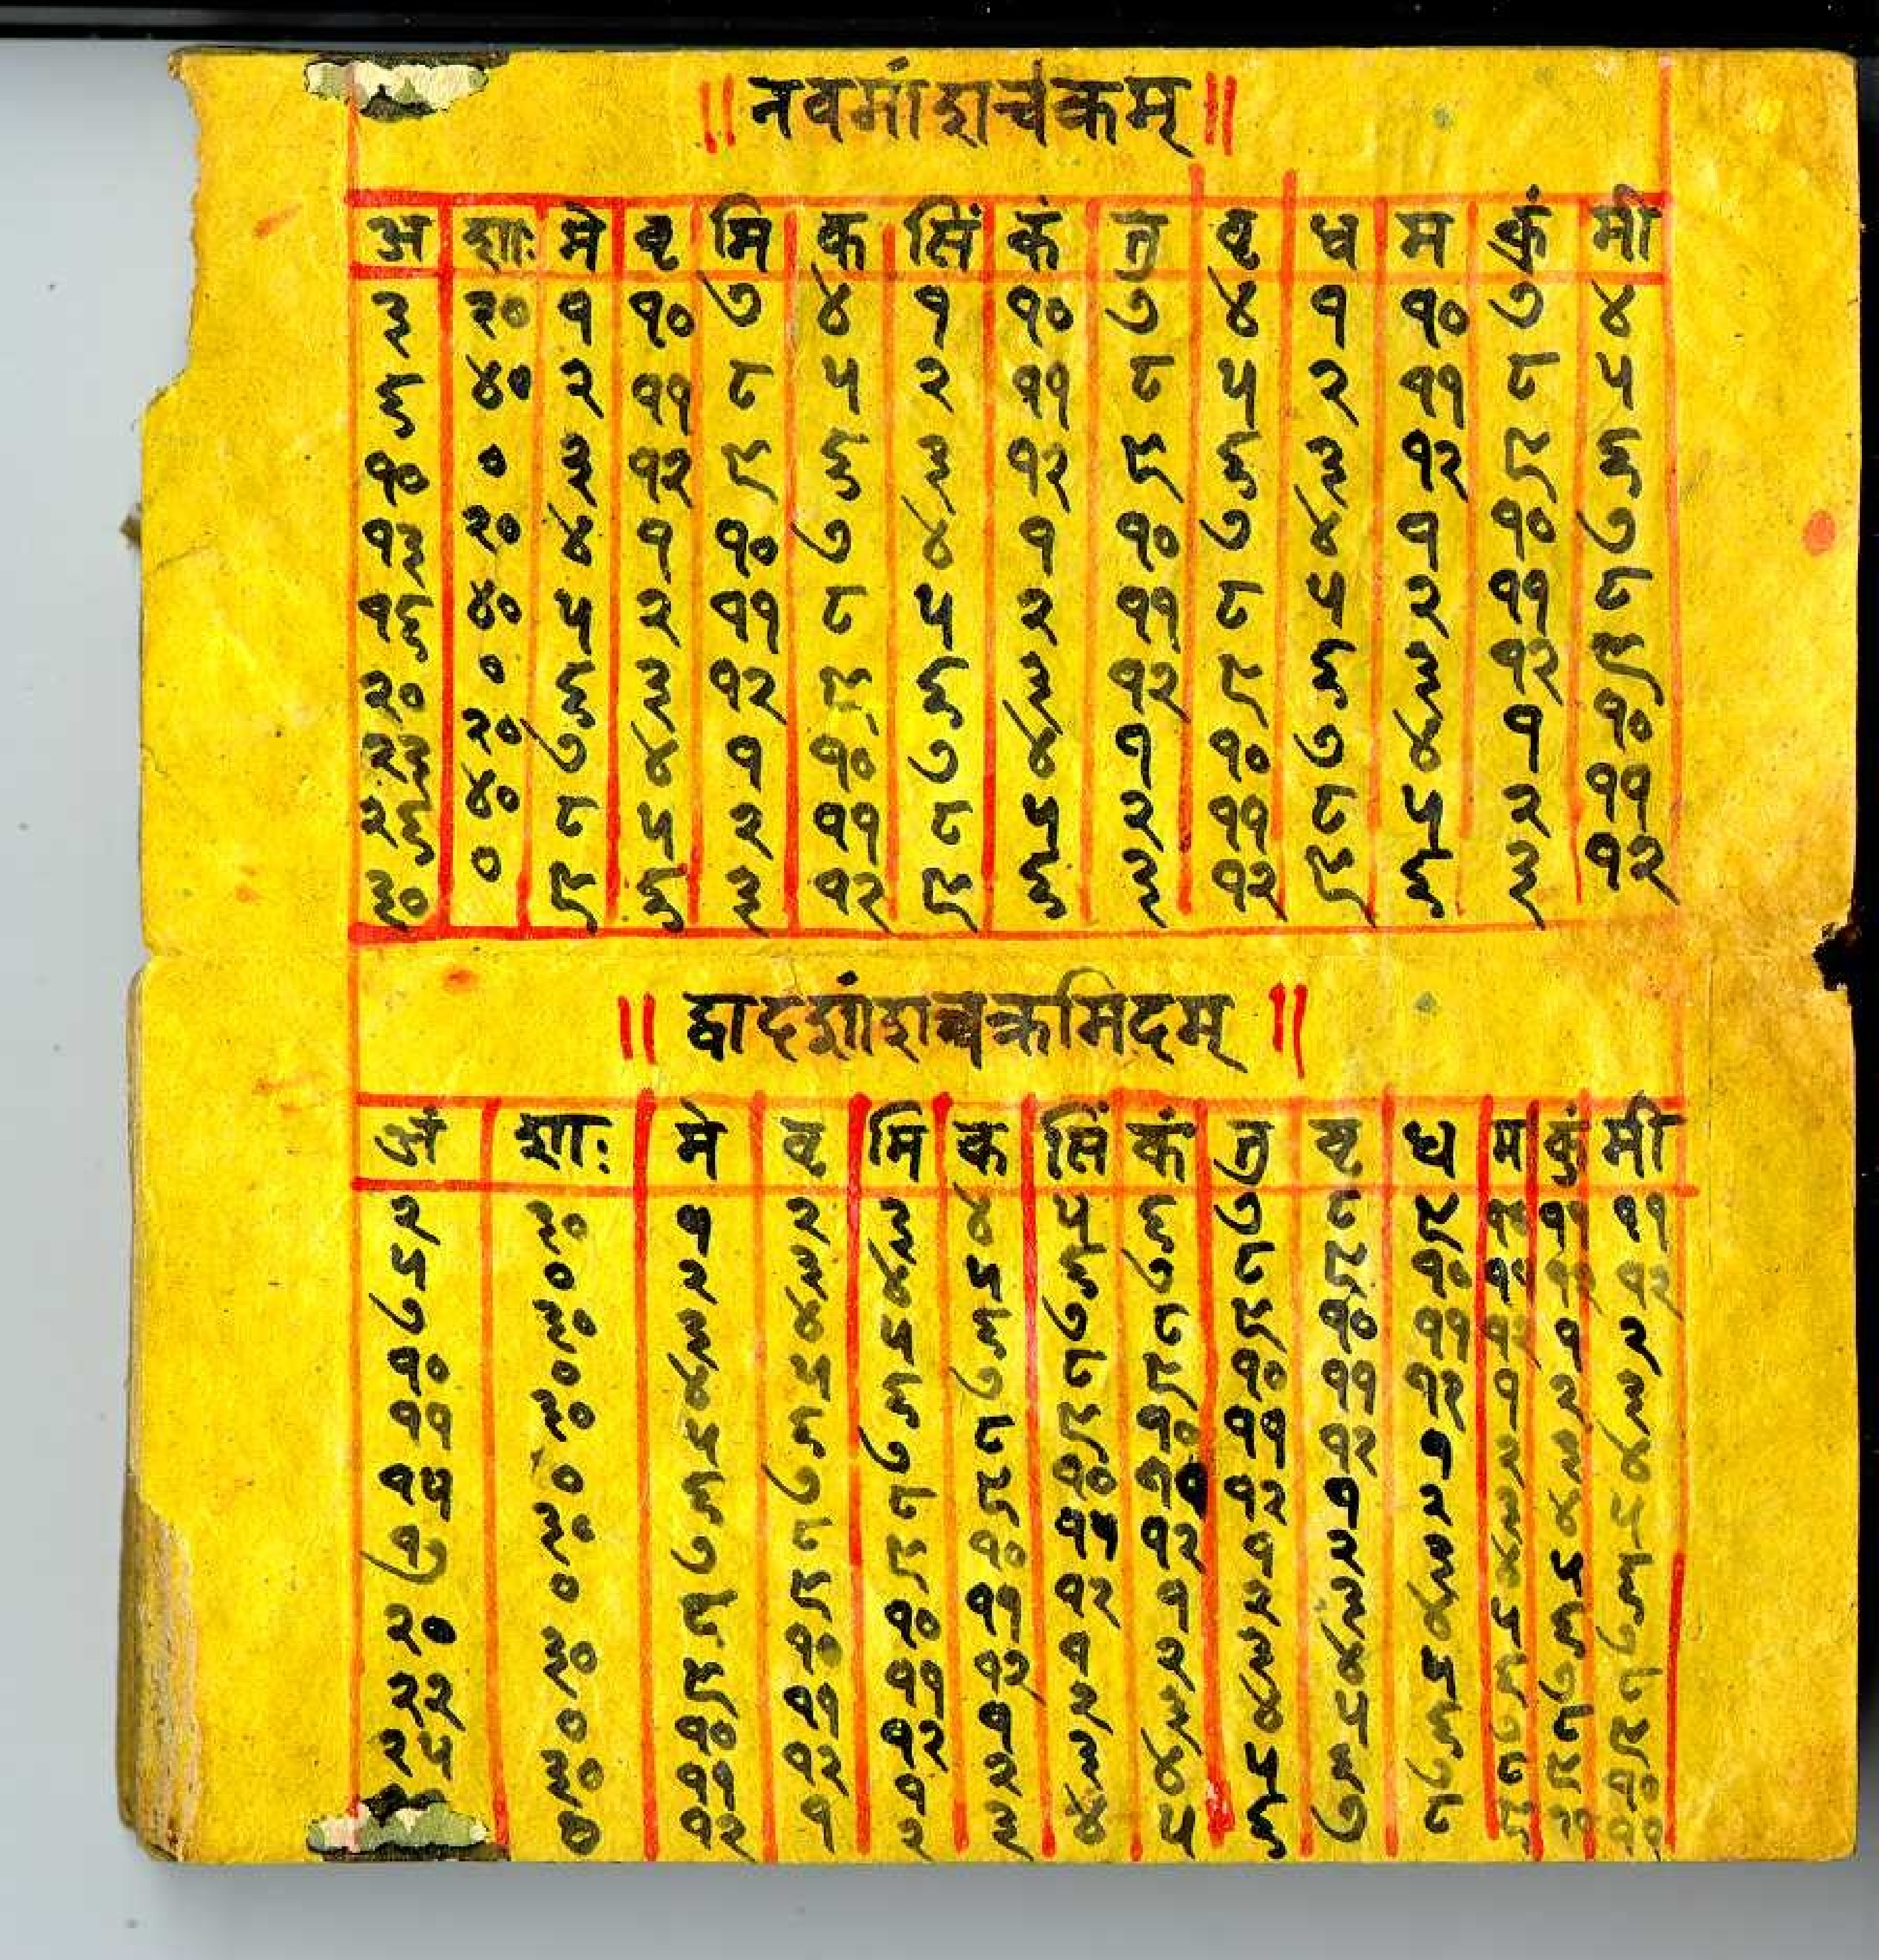 ॥ नवमांशचक्रम् ॥
अ शाः मे वृ मि क सिं कं तु वृ ध म कुं मी
३ २० १ १० ७ ४ १ १० ७ ४ १ १० ७ ४
६ ४० २ ११ ८ ५ २ ११ ८ ५ २ ११ ८ ५
१० ० ३ १२ ९ ६ ३ १२ ९ ६ ३ १२ ९ ६
१३ २० ४ १ १० ७ ४ १ १० ७ ४ १ १० ७
१६ ४० ५ २ ११ ८ ५ २ ११ ८ ५ २ ११ ८
२० ० ६ ३ १२ ९ ६ ३ १२ ९ ६ ३ १२ ९
२३ २० ७ ४ १ १० ७ ४ १ १० ७ ४ १ १०
२६ ४० ८ ५ २ ११ ८ ५ २ ११ ८ ५ २ ११
३० ० ९ ६ ३ १२ ९ ६ ३ १२ ९ ६ ३ १२
॥ द्वादशांशचक्रमिदम् ॥
अं शाः मे वृ मि क सिं कं तु वृ ध म कुं मी
२ ३० १ २ ३ ४ ५ ६ ७ ८ ९ १० ११ ११
५ ० २ ३ ४ ५ ६ ७ ८ ९ १० ११ १२ १२
७ ३० ३ ४ ५ ६ ७ ८ ९ १० ११ १२ १ २
१० ० ४ ५ ६ ७ ८ ९ १० ११ १२ १ २ ३
११ ३० ५ ६ ७ ८ ९ १० ११ १२ १ २ ३ ४
१५ ० ६ ७ ८ ९ १० ११ १२ १ २ ३ ४ ५
१७ ३० ७ ८ ९ १० ११ १२ १ २ ३ ४ ५ ६
२० ० ८ ९ १० ११ १२ १ २ ३ ४ ५ ६ ७
२२ ३० ९ १० ११ १२ १ २ ३ ४ ५ ६ ७ ८
२५ ० १० ११ १२ १ २ ३ ४ ५ ६ ७ ८ ९
३० ११ १२ १ २ ३ ४ ५ ६ ७ ८ ९ १०
० १२ १ २ ३ ४ ५ ६ ७ ८ ९ १० ११